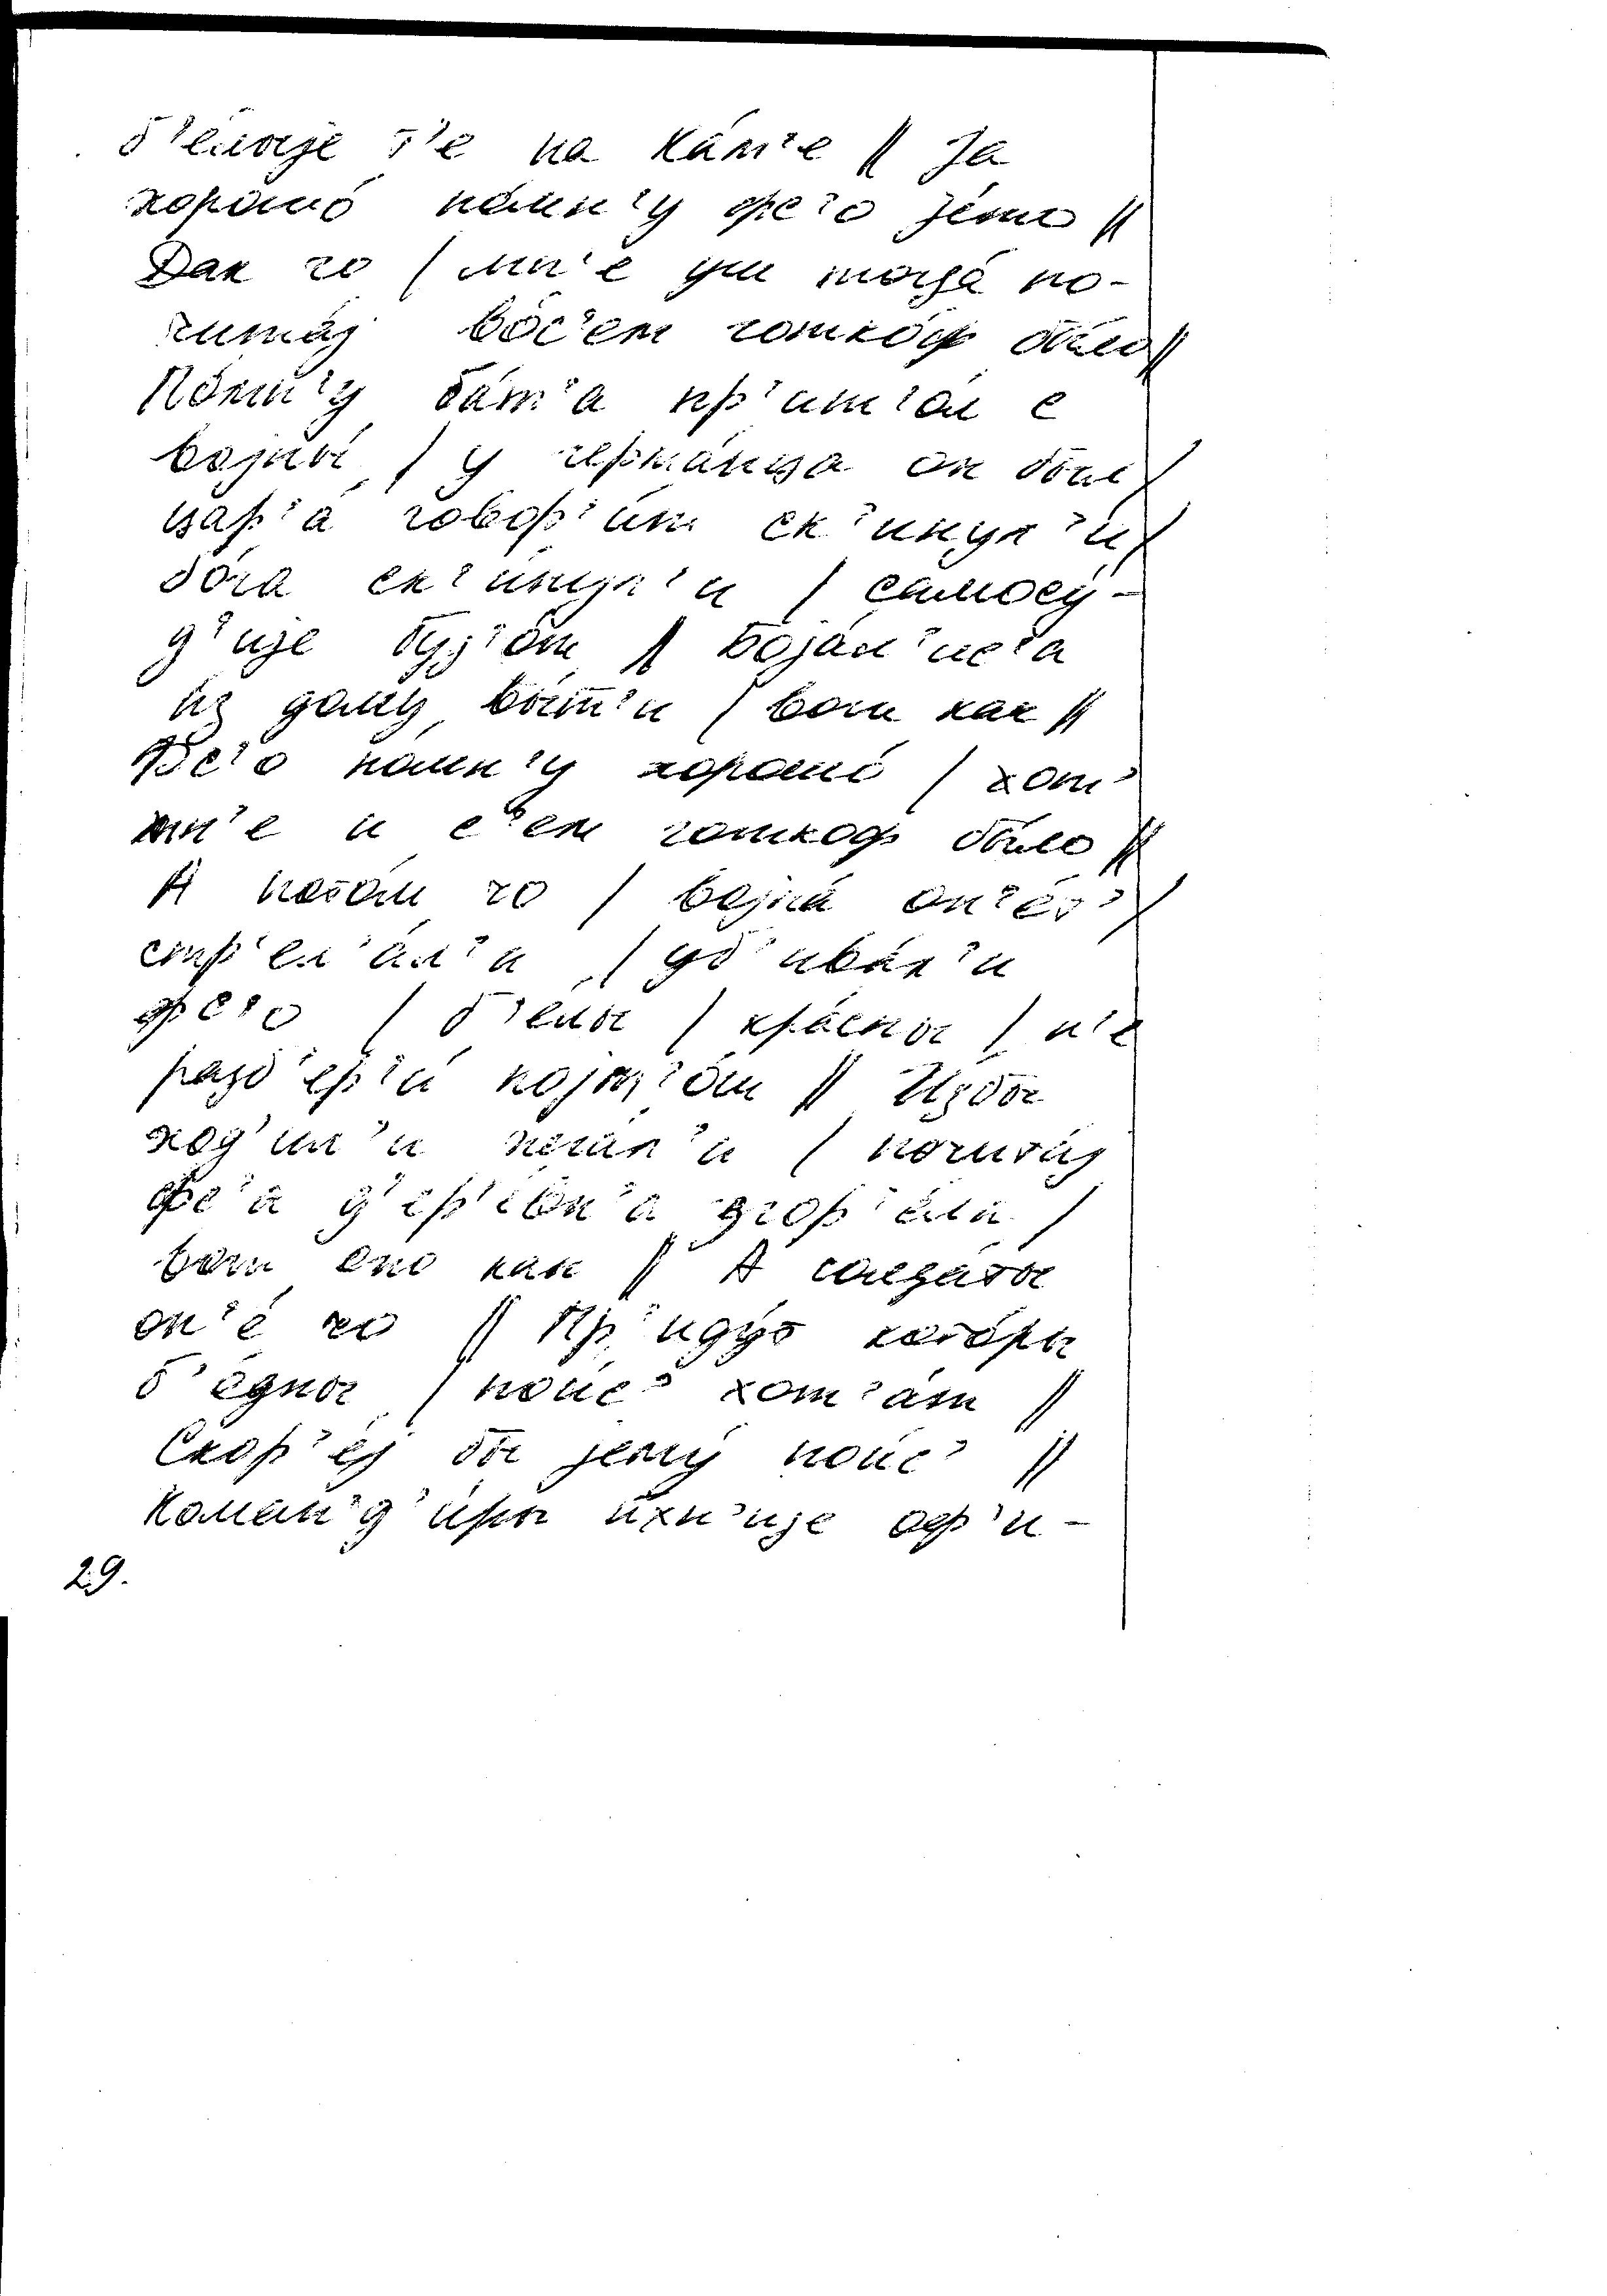 б'е́лыjе т'е на ка́т'е // Ja
хорошо́ по́мн'у фс'о jе́то //
Дак чо / мн'е уш тогда́ по-
чита́j во́с'ем готко́ф бы́ло //
По́мн'у ба́т'а пр'иш'о́л с
воjны́ / у герма́нца он был /
цар'а́ говор'и́т ск'и́нул'и /
бо́га ск'и́нул'и / самосу́-
д'иjе буд'о́т // Боjа́л'ис'а
из дому вы́т'и / вот как //
Фс'о по́мн'у хорошо́ / хот'
мн'е и с'ем готкоф бы́ло //
А пото́м чо / воjна́ оп'е́т' /
стр'ел'а́л'и / уб'ива́л'и
фс'о / б'е́лы / кра́сны / н'е
разб'ер'и́ поjм'о́ш // И́збы
ход'ил'и жга́л'и / почита́j
фс'а д'ер'е́вн'а згор'е́ла /
вот оно как // А солда́ты
он'е́ чо // Пр'иду́т кото́ры
б'е́дны / пойс' хот'а́т //
Скор'е́j бы jему́ пойс' //
Коман'д'и́ры и́хн'иjе оф'и-
29.